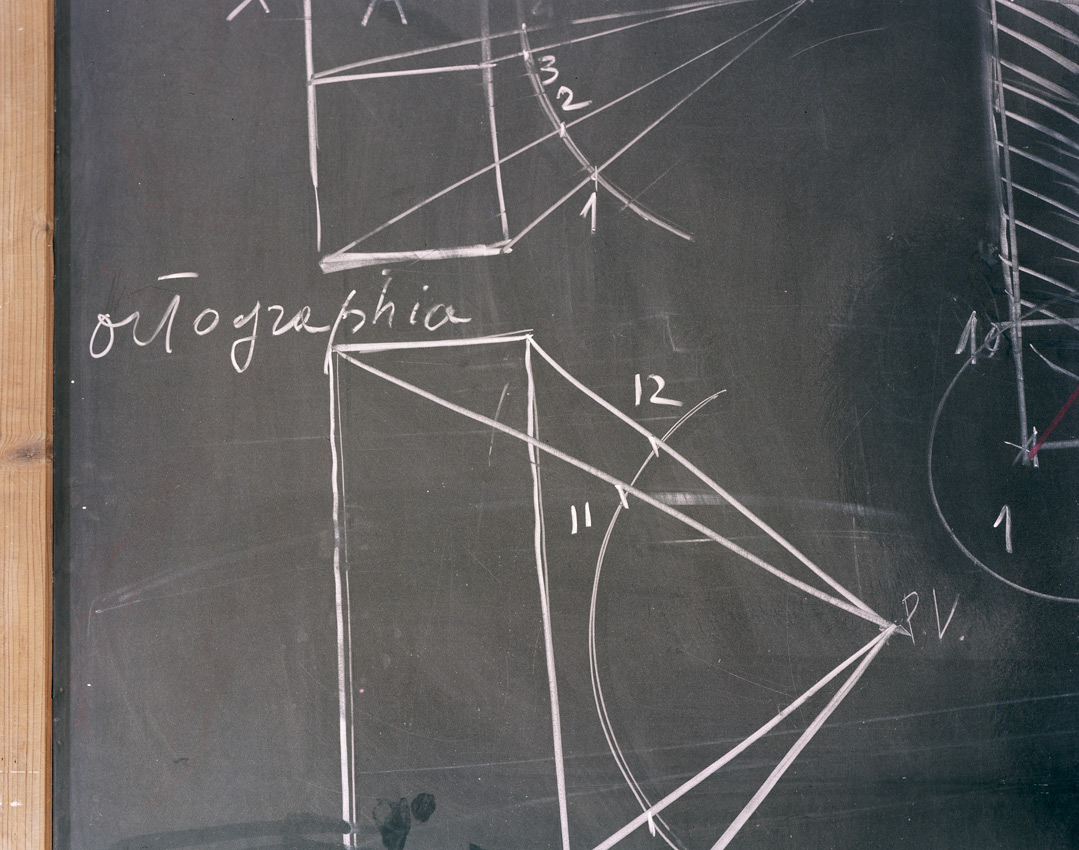 3
2
1
ortographia
10
12
11
1
P.V.